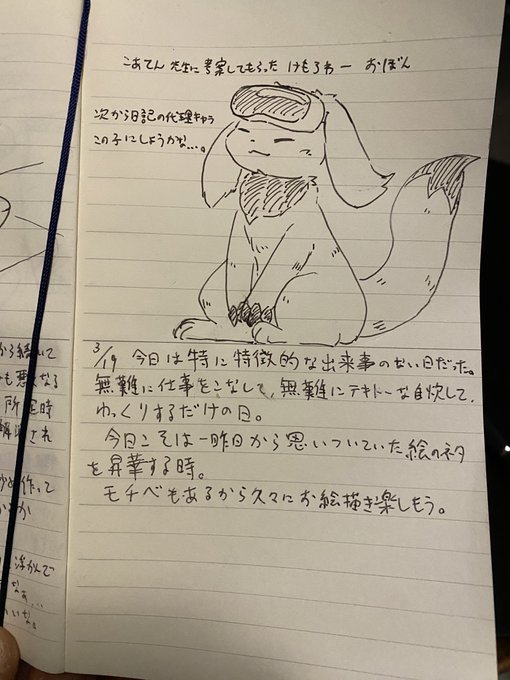 こあてん先生に考察してもらった けもろわー おぼん
次から日記の代理キャラ
この子にしようかな…。
3/19 今日は特に特徴的な出来事のない日だった。
無難に仕事をこなして、無難にテキトーな自炊して、
ゆっくりするだけの日。
今日こそは一昨日から思いついていた絵のネタ
を昇華する時。
モチベもあるから久々にお絵描き楽しもう。
から続いて
も悪くなる
所定時
され
作って
浮かんで
なぁ…
いいな。